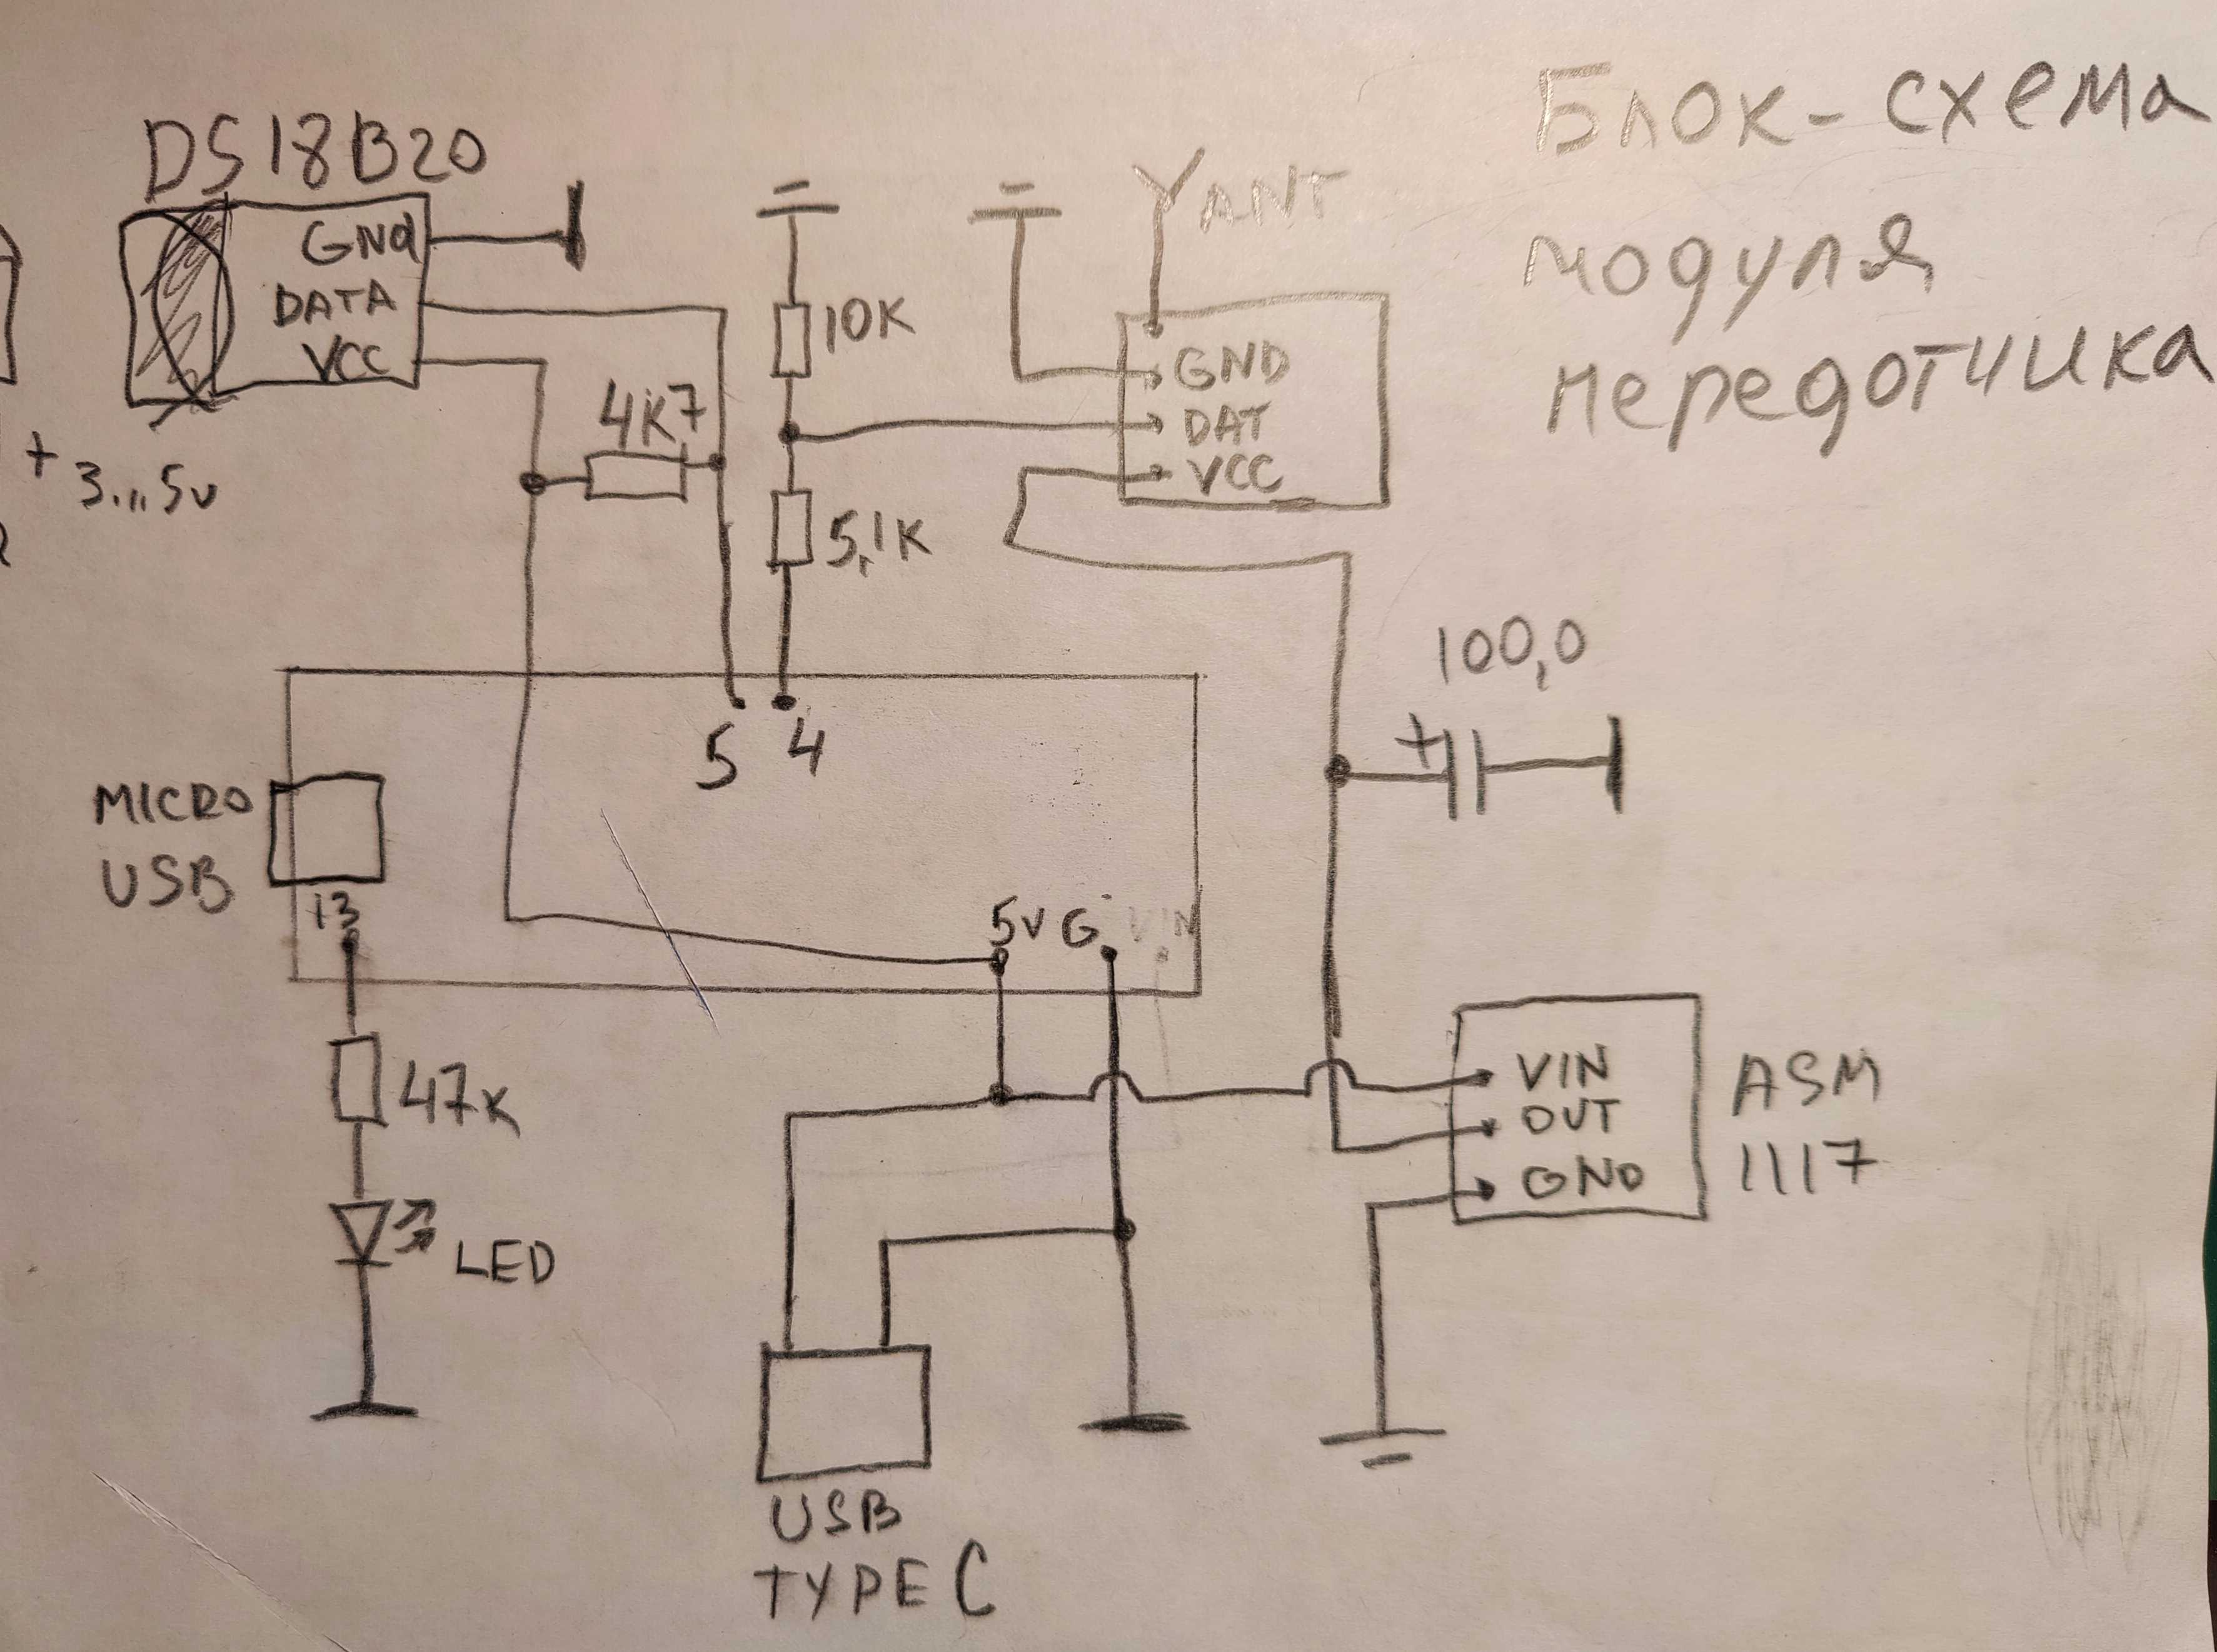 Блок-схема
модуля
передотчика
DS18B20
GND
DATA
VCC
+3...5v
4K7
10K
5,1K
ANT
GND
DAT
VCC
100,0
+
5 4
MICRO
USB
13
5V G VIN
47K
LED
VIN
OUT
GND
ASM
1117
USB
TYPE C